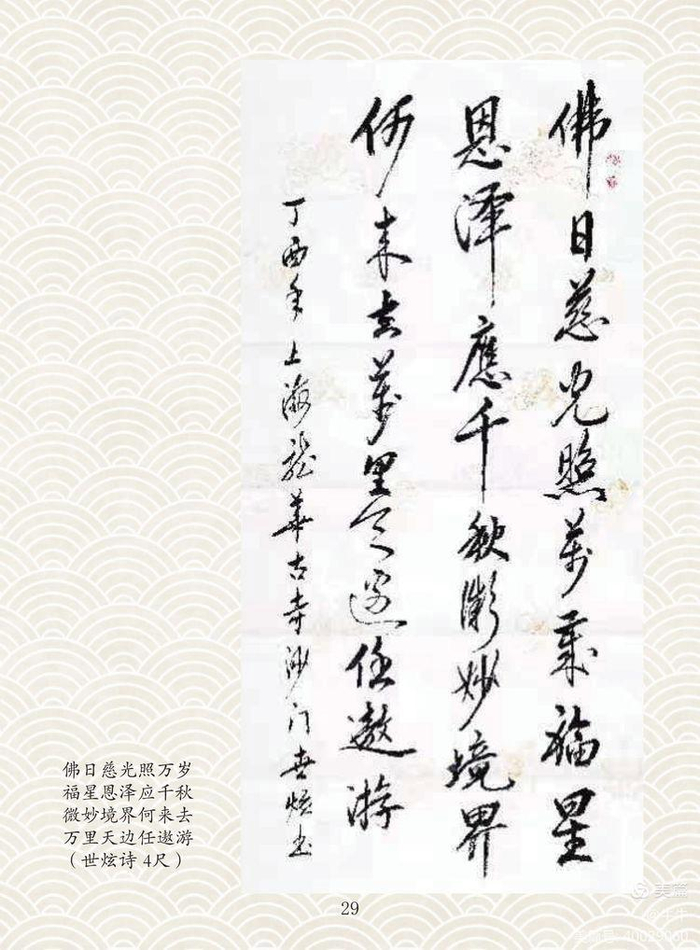 佛日慈光照萬歲福星
恩泽應千秋微妙境界
何来去萬里天邊任遨游
丁酉年上海龍華古寺沙门世炫书
佛日慈光照万岁
福星恩泽应千秋
微妙境界何来去
万里天边任遨游
（世炫诗 4尺）
29
美篇